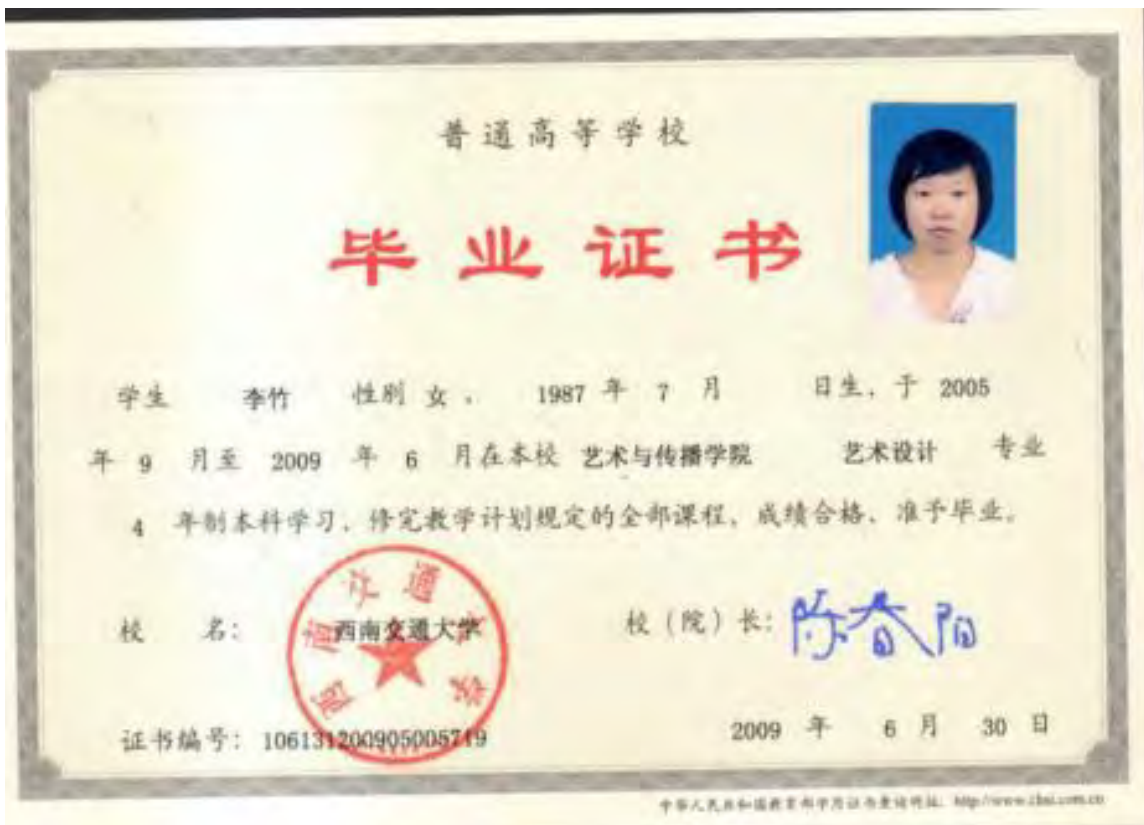 普通高等学校
毕业证书
学生 李竹 性别 女 、 1987 年 7 月 日生、于 2005
年 9 月至 2009 年 6 月在本校 艺术与传播学院 艺术设计 专业
4 年制本科学习、修完教学计划规定的全部课程、成绩合格、准予毕业。
校 名： 西南交通大学 校（院）长：陈春阳
西南交通大学
证书编号：106131200905005719 2009 年 6 月 30 日
中华人民共和国教育部学历证书查询网址：http://www.chsi.com.cn